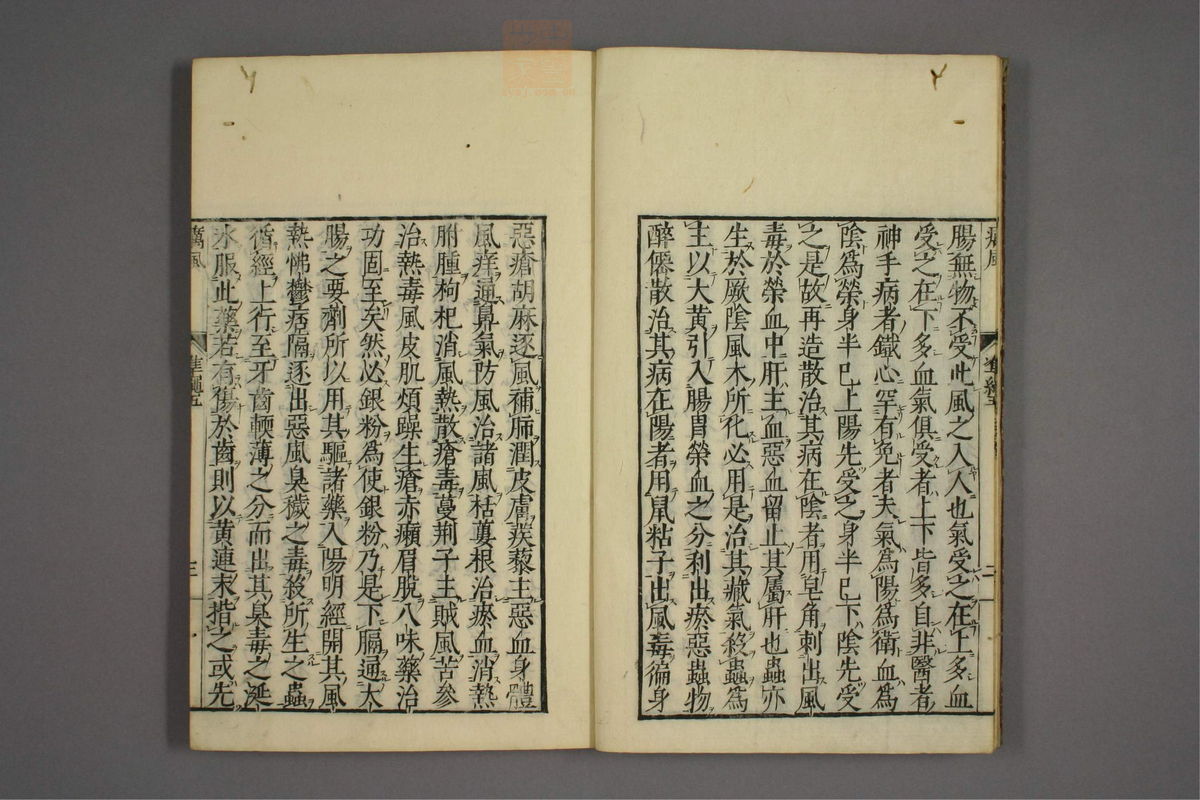 腸無物不受此風之入人也氣受之在上多血
受之在下多血氣俱受者上下皆多自非醫者
神手病者鐵心罕有免者夫氣為陽為衛血為
陰為榮身半已上陽先受之身半已下陰先受
之是故再造散治其病在陰者用皂角刺出風
毒於榮血中肝主血惡血留止其屬肝也蟲亦
生於厥陰風木所化必用是治其藏氣殺蟲為
主以大黃引入腸胃榮血之分利出瘀惡蟲物
醉僊散治其病在陽者用鼠粘子出風毒徧身
惡瘡胡麻逐風補肺潤皮膚蒺藜主惡血身體
風痒通鼻氣防風治諸風栝蔞根治瘀血消熱
胕腫枸杞消風熱散瘡毒蔓荊子主賊風苦參
治熱毒風皮肌煩躁生瘡赤癩眉脫八味藥治
功固至矣然必銀粉為使銀粉乃是下膈通大
腸之要劑所以用其驅諸藥入陽明經開其風
熱怫鬱痞隔逐出惡風臭穢之毒殺所生之蟲
循經上行至牙齒輭薄之分而出其臭毒之涎
水服此藥若有傷於齒則以黃連末揩之或先
癘風
準繩五
三